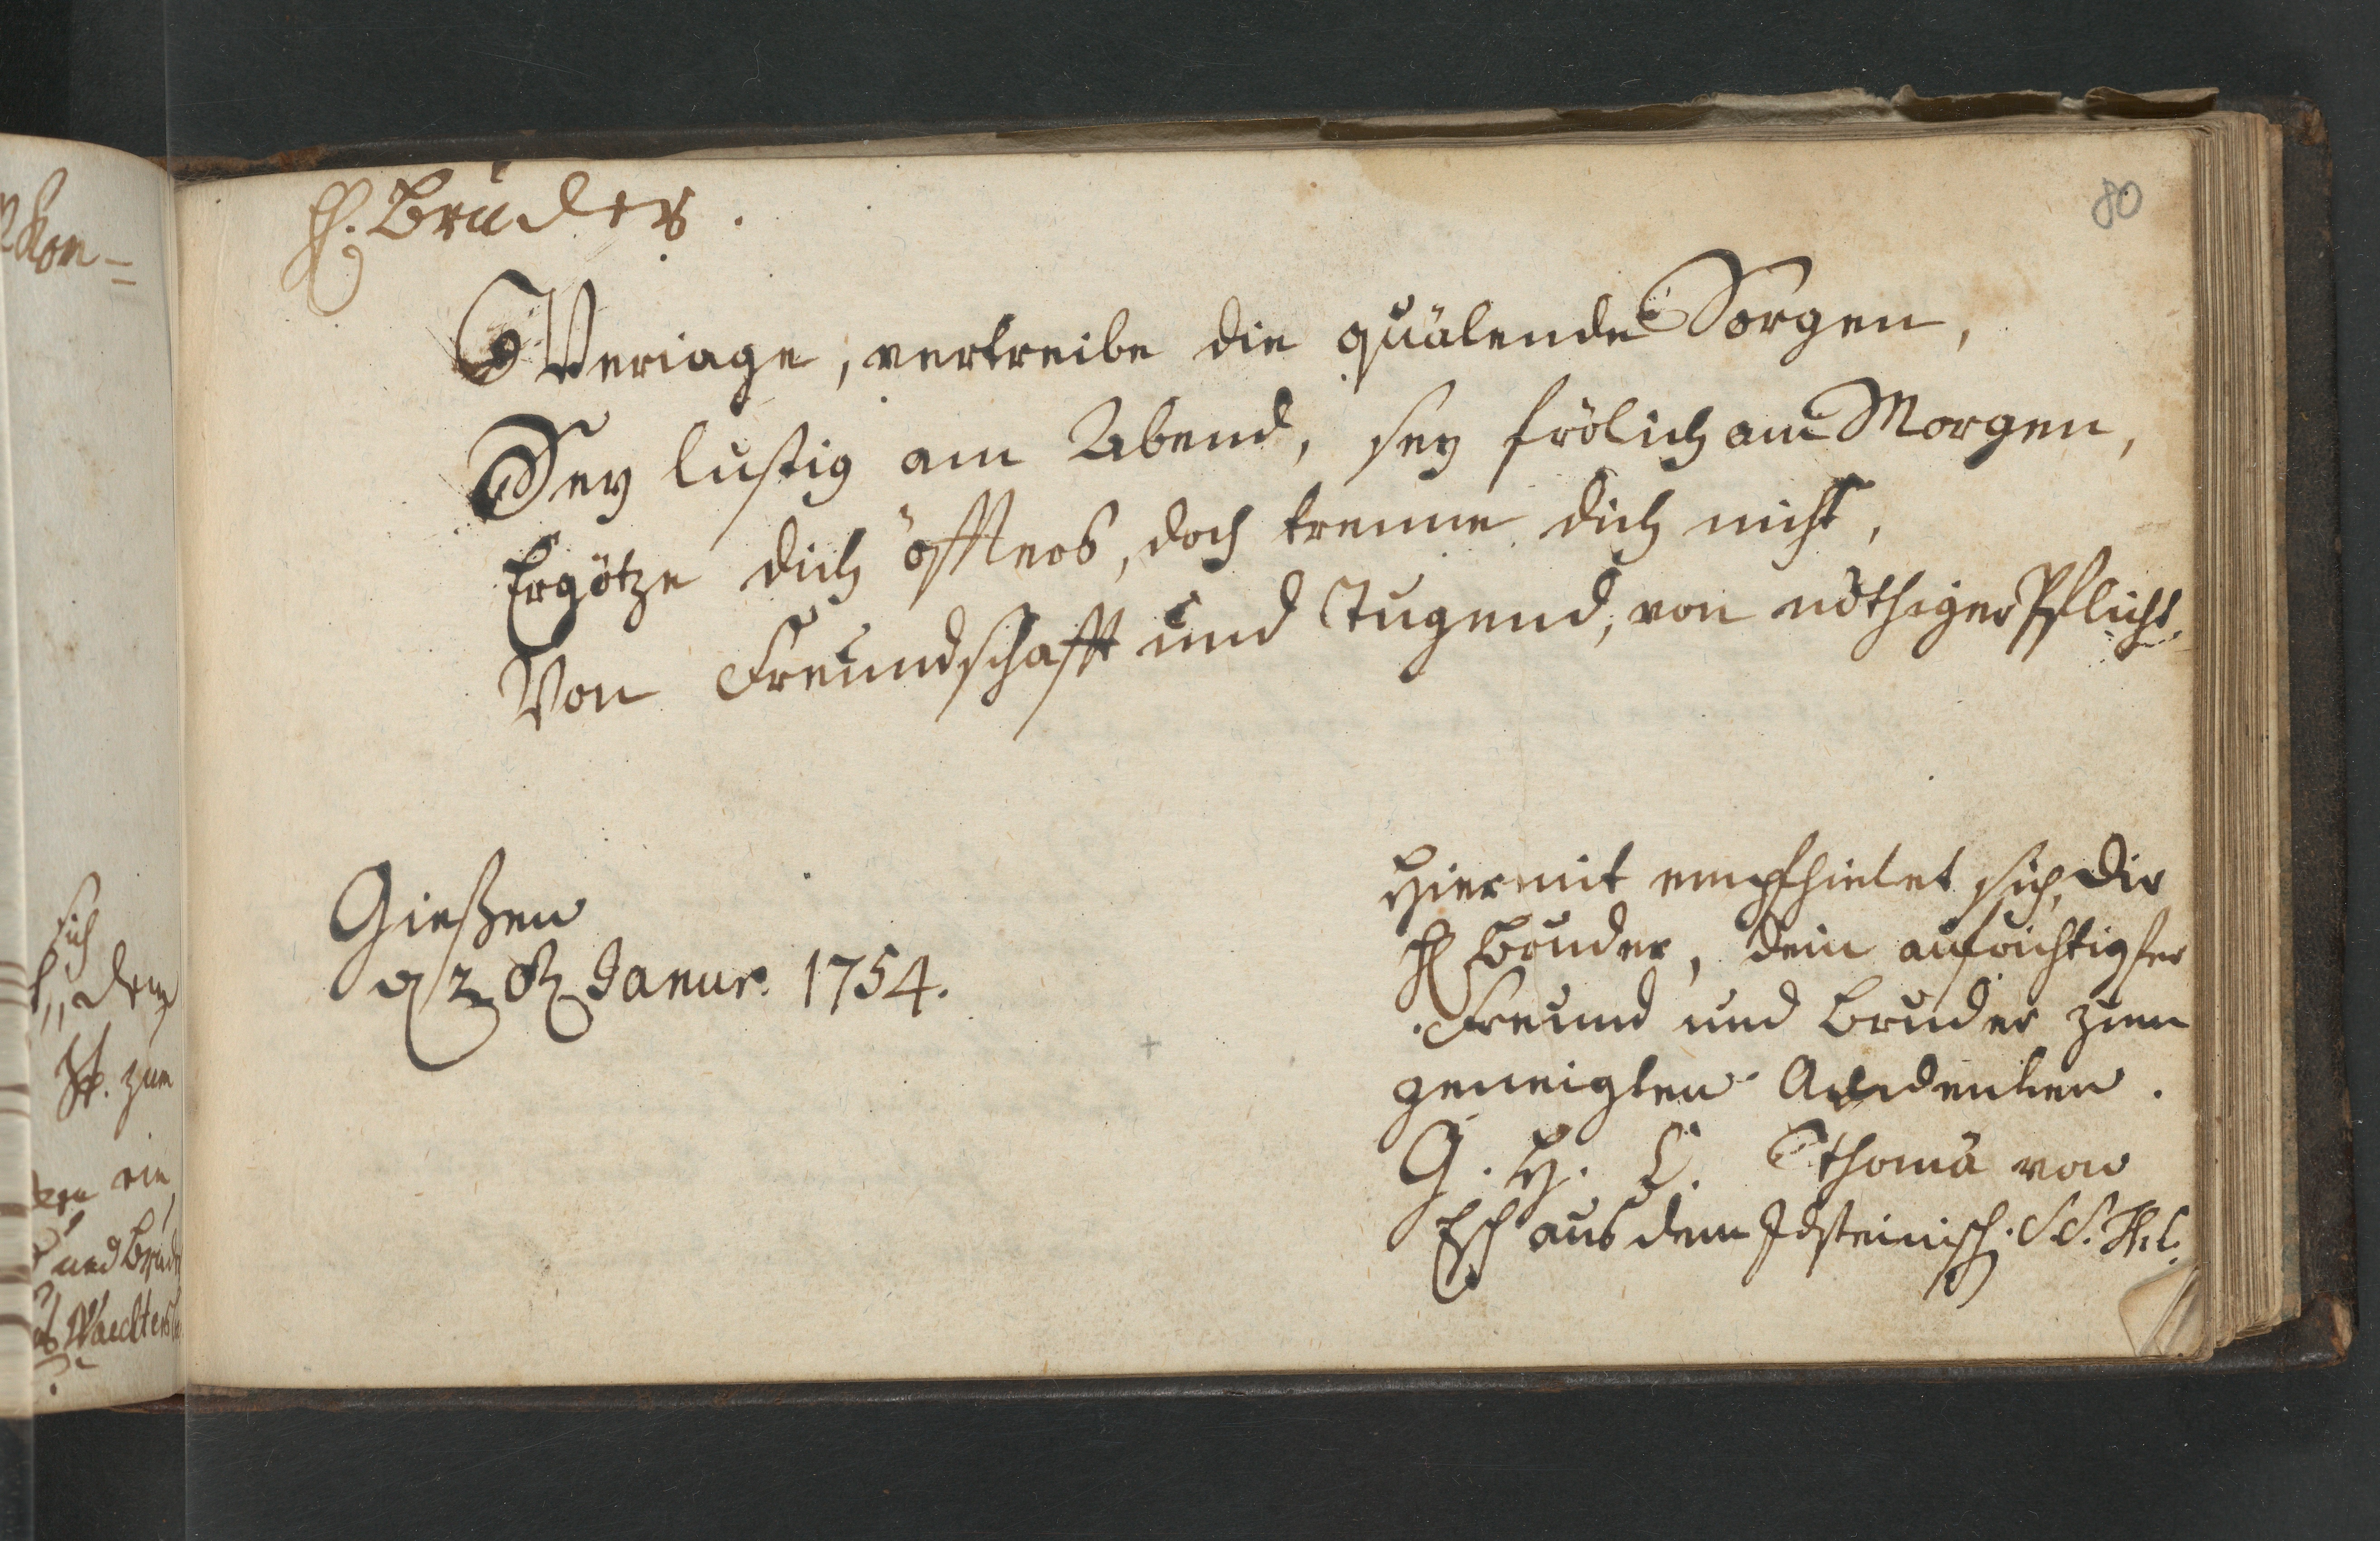 80
H. Bruder.
Veriage, vertreibe die quälende Sorgen,
Sey lustig am Abend, sey frölich am Morgen,
Ergötze dich öffters, doch trenne dich nicht,
Von Freundschafft und Tugend, von nöthiger Pflicht.
Gießen
d 2 Janur. 1754.
Hiermit empfhielet sich, dir
H Bruder, dein aufrichtigster
Freund und Bruder zum
geneigten Andencken.
G. H. C. Thomä von
Esch aus dem Idsteinisch. S.S. Th. C.
sich
zum
ein
und Brud